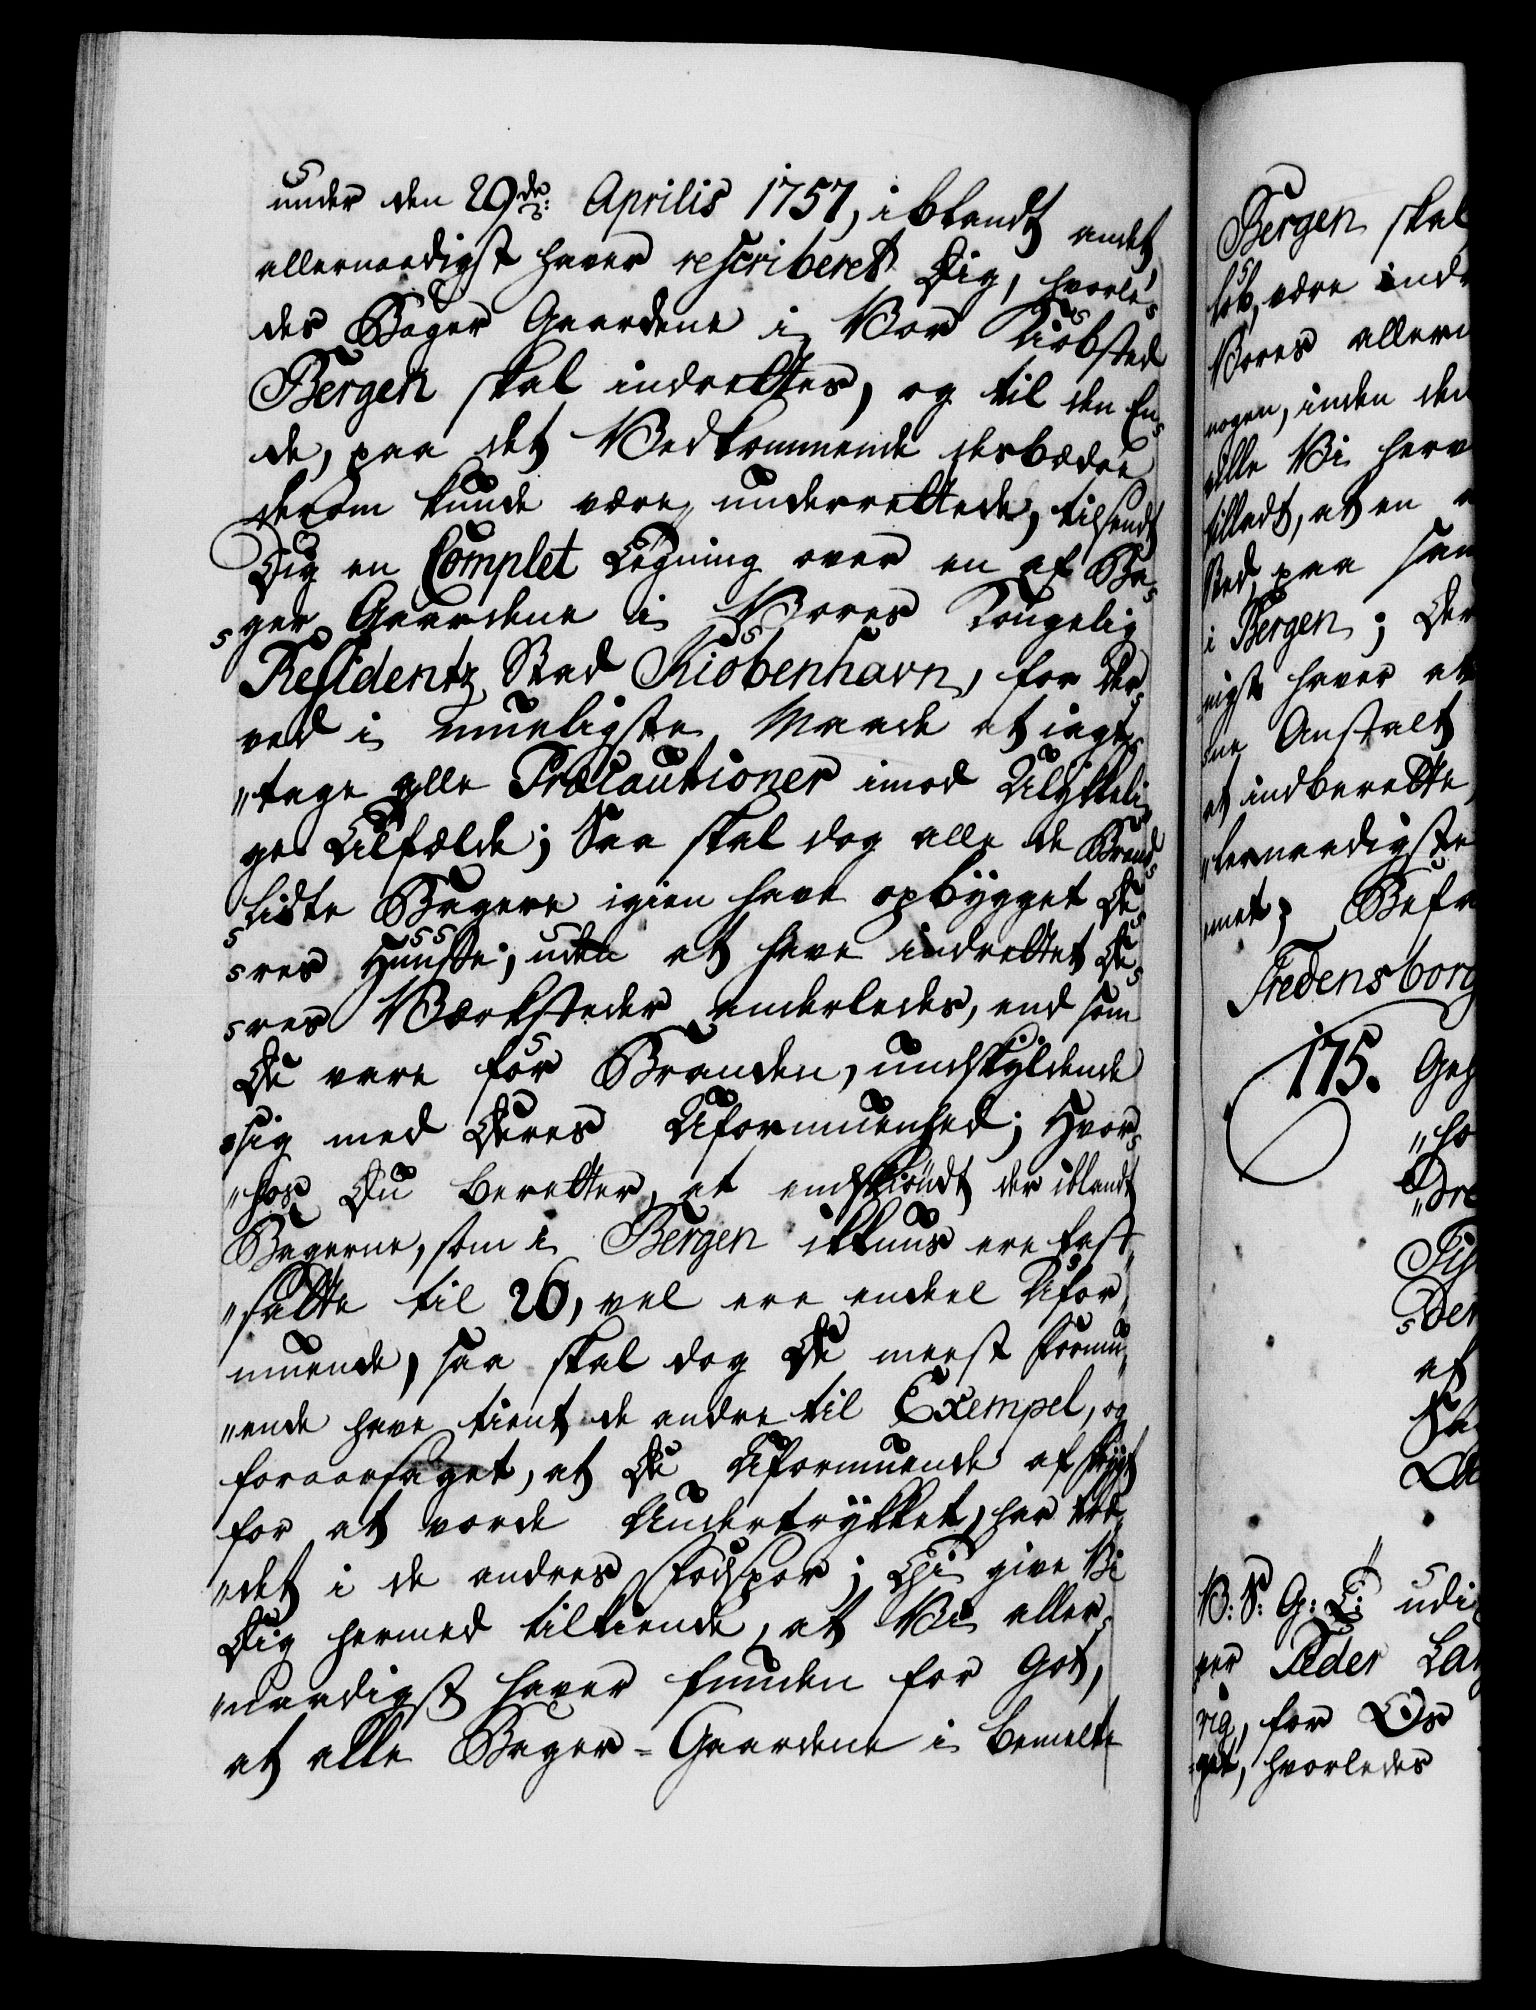 under den 29de: Aprilis 1757, iblandt andet,
allernaadigst haver rescriberet Dig, hvorle-
des Bager Gaardene i Vor Kiøbsted
Bergen skal indrettes, og til den En-
de, paa det Vedkommende desbædre
derom kunde være underrettede, tilsendt
Dig en Complet Tegning over en af Ba-
-ger Gaardene i Vores Kongelig
Residentz Stad Kiøbenhavn, for der-
ved i mueligste Maade at iagt-
"tage alle Præcautioner imod Ulykkeli-
ge Tilfælde; Saa skal dog alle de Brand-
lidte Bagere igien have opbygget De-
-res Huusse, uden at have indrettet De-
-res Værksteder anderledes, end som
De vare før Branden, undskyldende
sig med Deres Uformuenhed; Hvor-
"hos Du beretter, at endskiøndt der iblandt
Bagerne, som i Bergen ikkuns ere fast-
"satte til 26, vel ere endeel Ufor-
muende, saa skal dog De meest formu-
"ende have tient de andre til Exempel, og
foraarsaget, at De Uformuende af frygt
for at vorde Undertrykket, har traa-
"det i de andres Fodspor; Thi give Vi
Dig hermed tilkiende, at Vi aller-
"naadigst haver funden for Got,
at alle Bager-Gaardene i bemelte
Bergen skal
løb, være ind
Vores allern
nogen, inden den
alle Vi herv
tilladt, at en
Sted paa sam
i Bergen; Der
-nigst haver at
-ne Anstalt
at indberette,
"lernaadigste
-met; Befa
Fredensborg
175. Geh
"ho
Der
af
V: S: G: T: udi
per Peder Lar
rig, for Os
-get, hvorledes